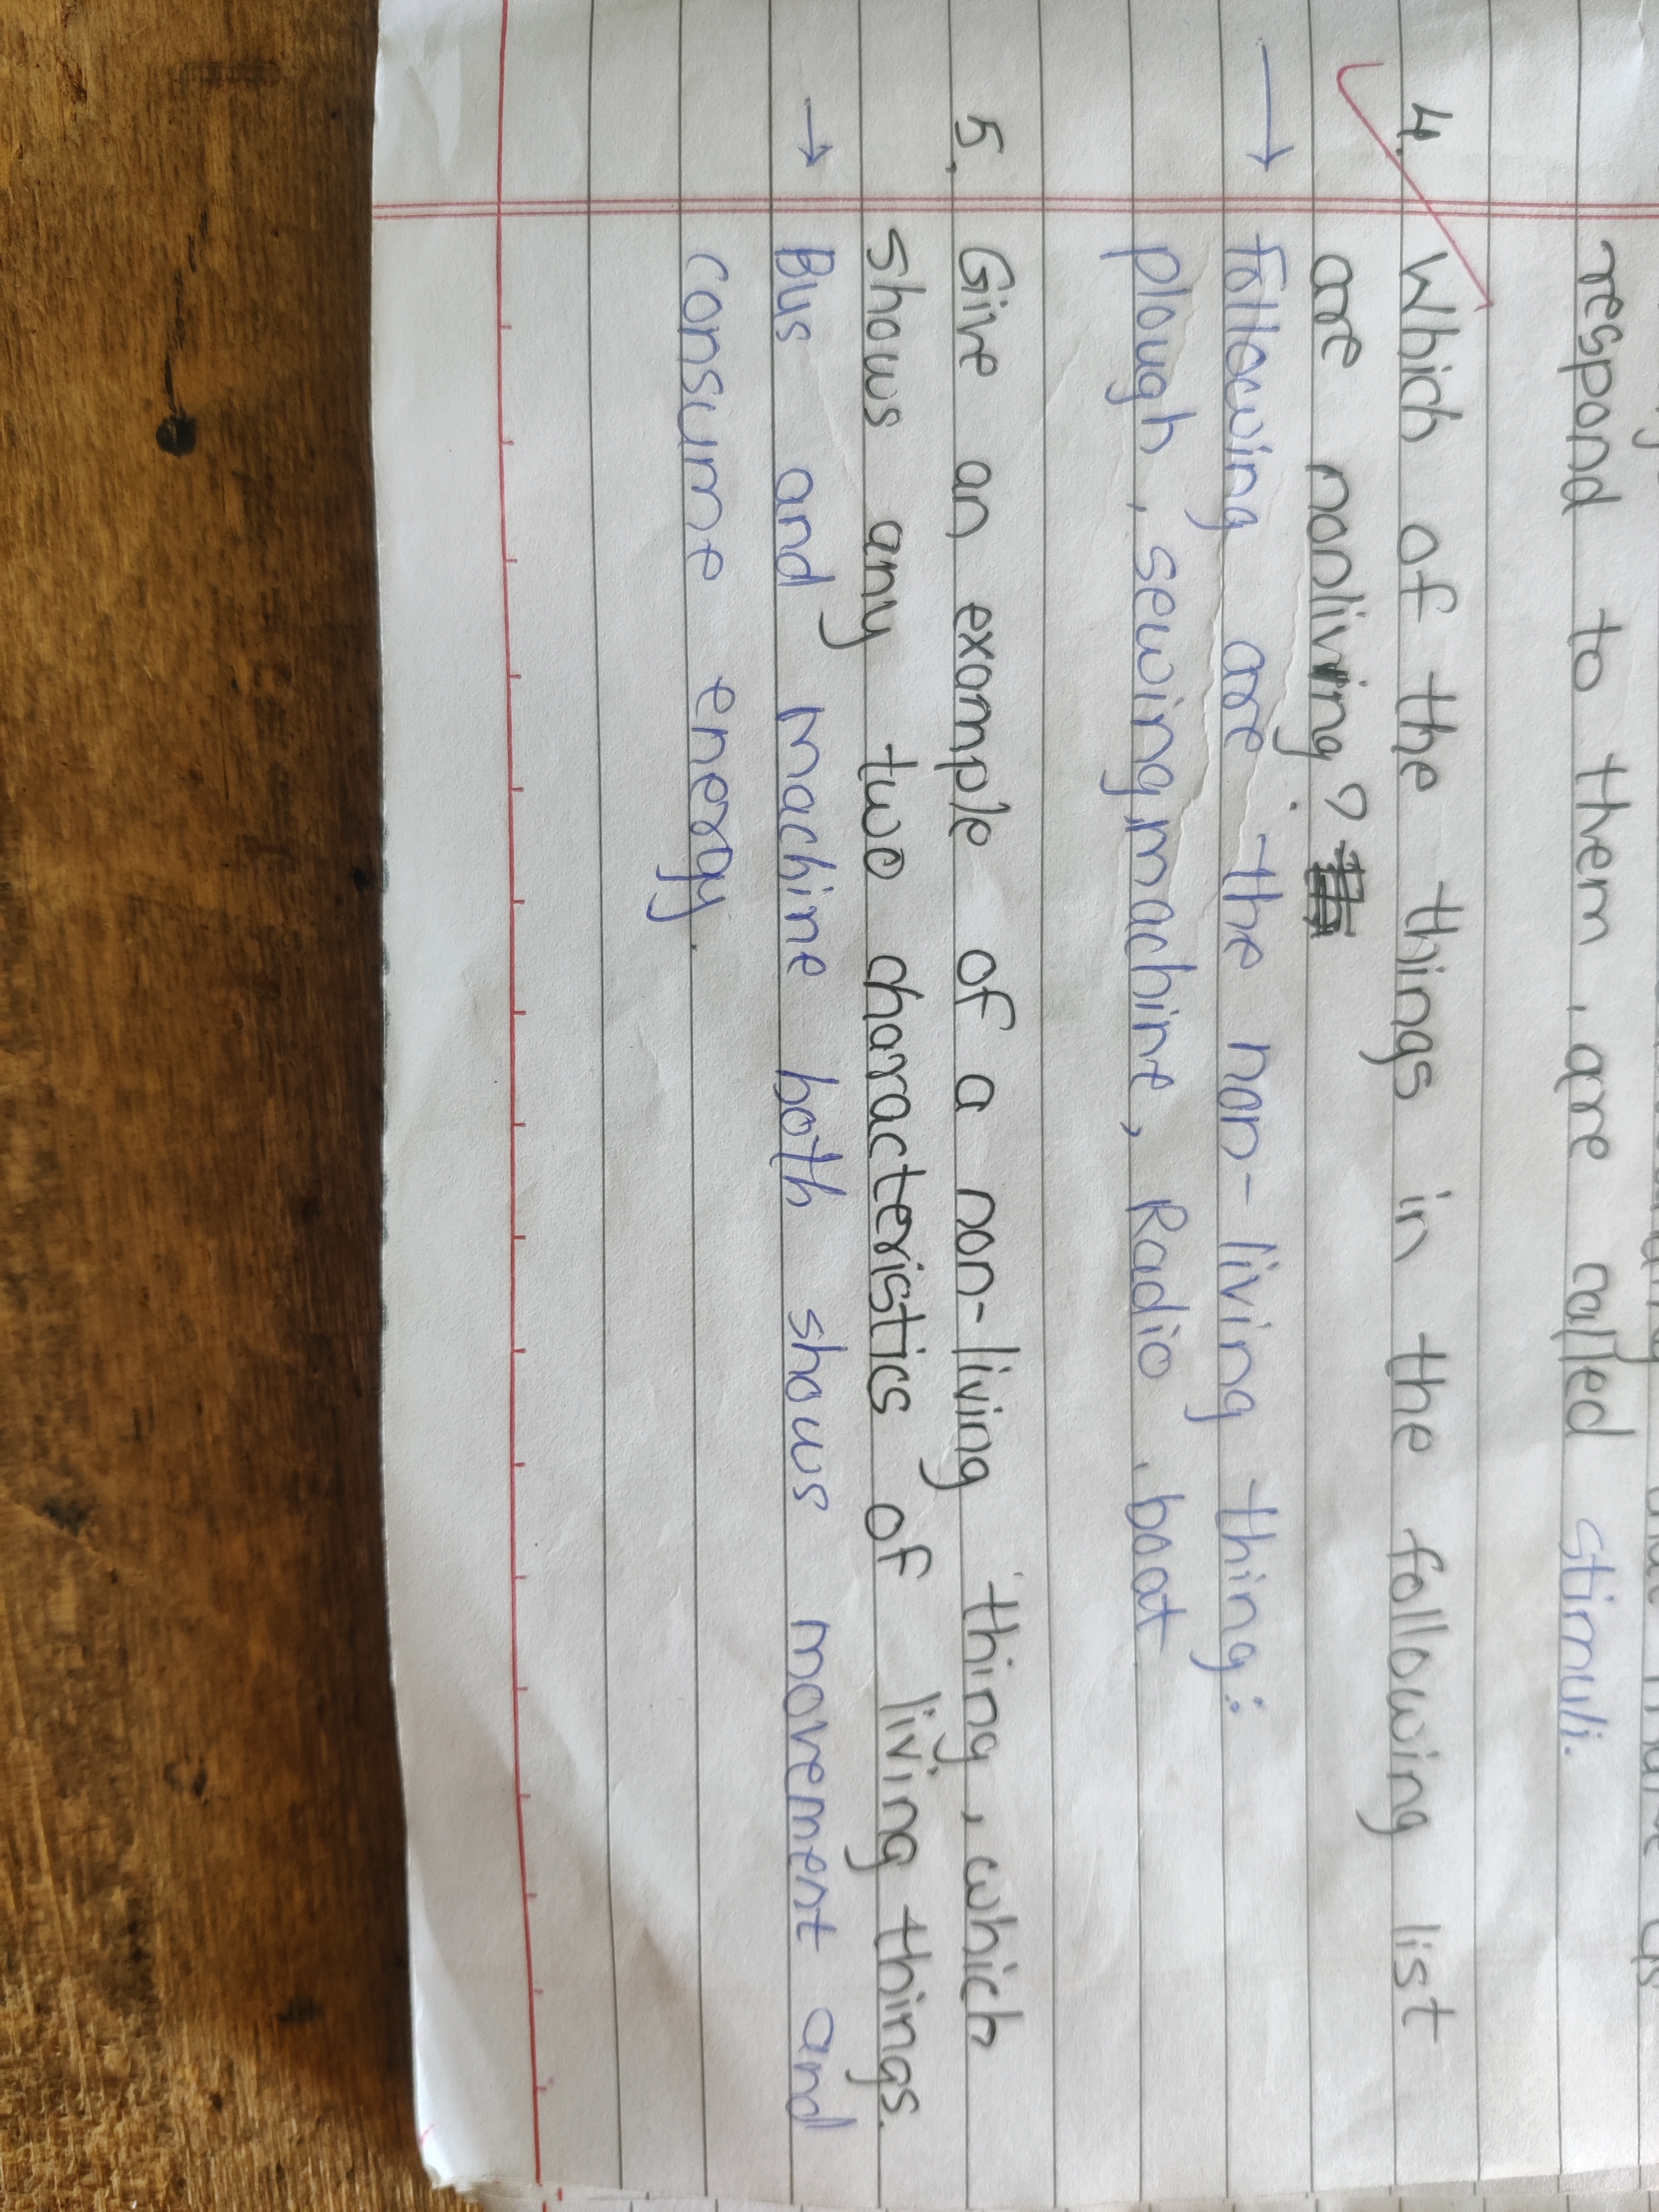 respond to them, are called stimuli.
4. Which of the things in the following list
are nonliving?
→ following are the non-living thing:
plough, sewing machine, Radio, boat
5. Give an example of a non-living thing, which
shows any two characteristics of living things.
→ Bus and machine both shows movement and
consume energy.